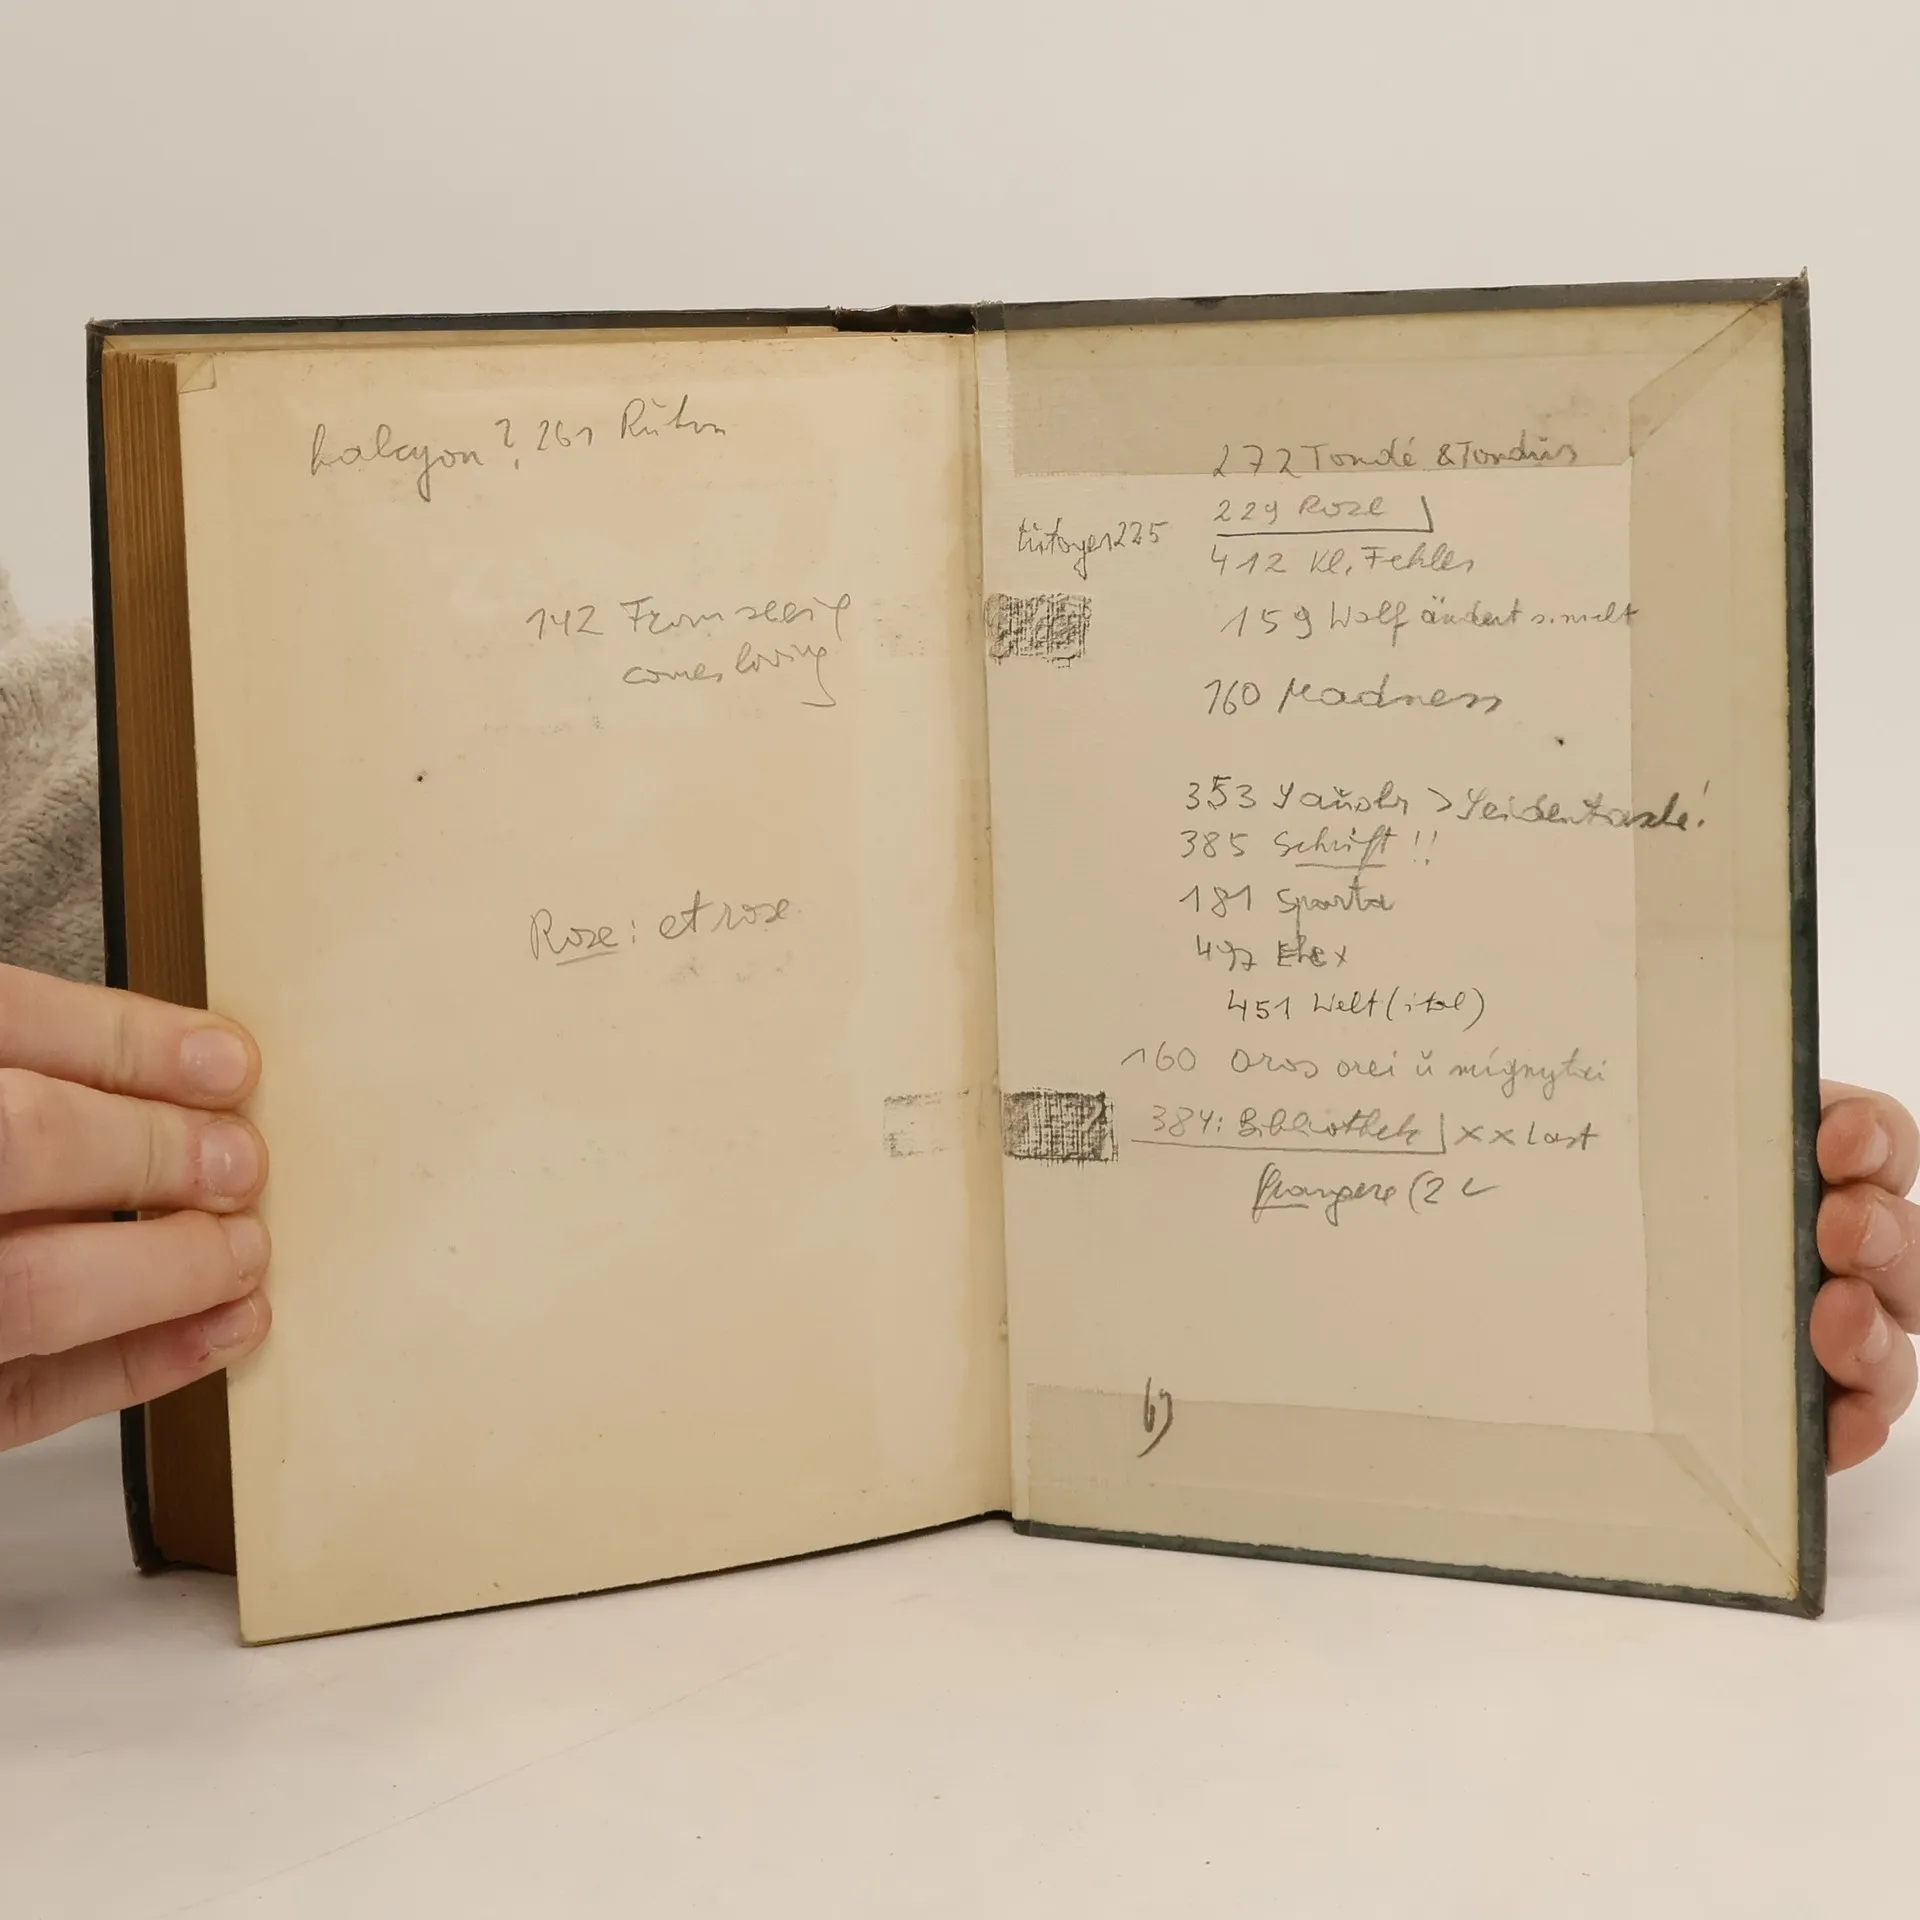 halcyon ? 261 Ruhm
142 From seeing
comes loving
Rose: et rose
272 Tondé & Tondus
229 Rose
tutoyer 225
412 Kl. Fehler
159 Wolf ändert s. nicht
160 Madness
353 > Seidentasche!
385 Schrift !!
181 Sparta
497 Ehe x
451 Welt (ital)
160 oros orei
384: Bibliothek x x Last
(2